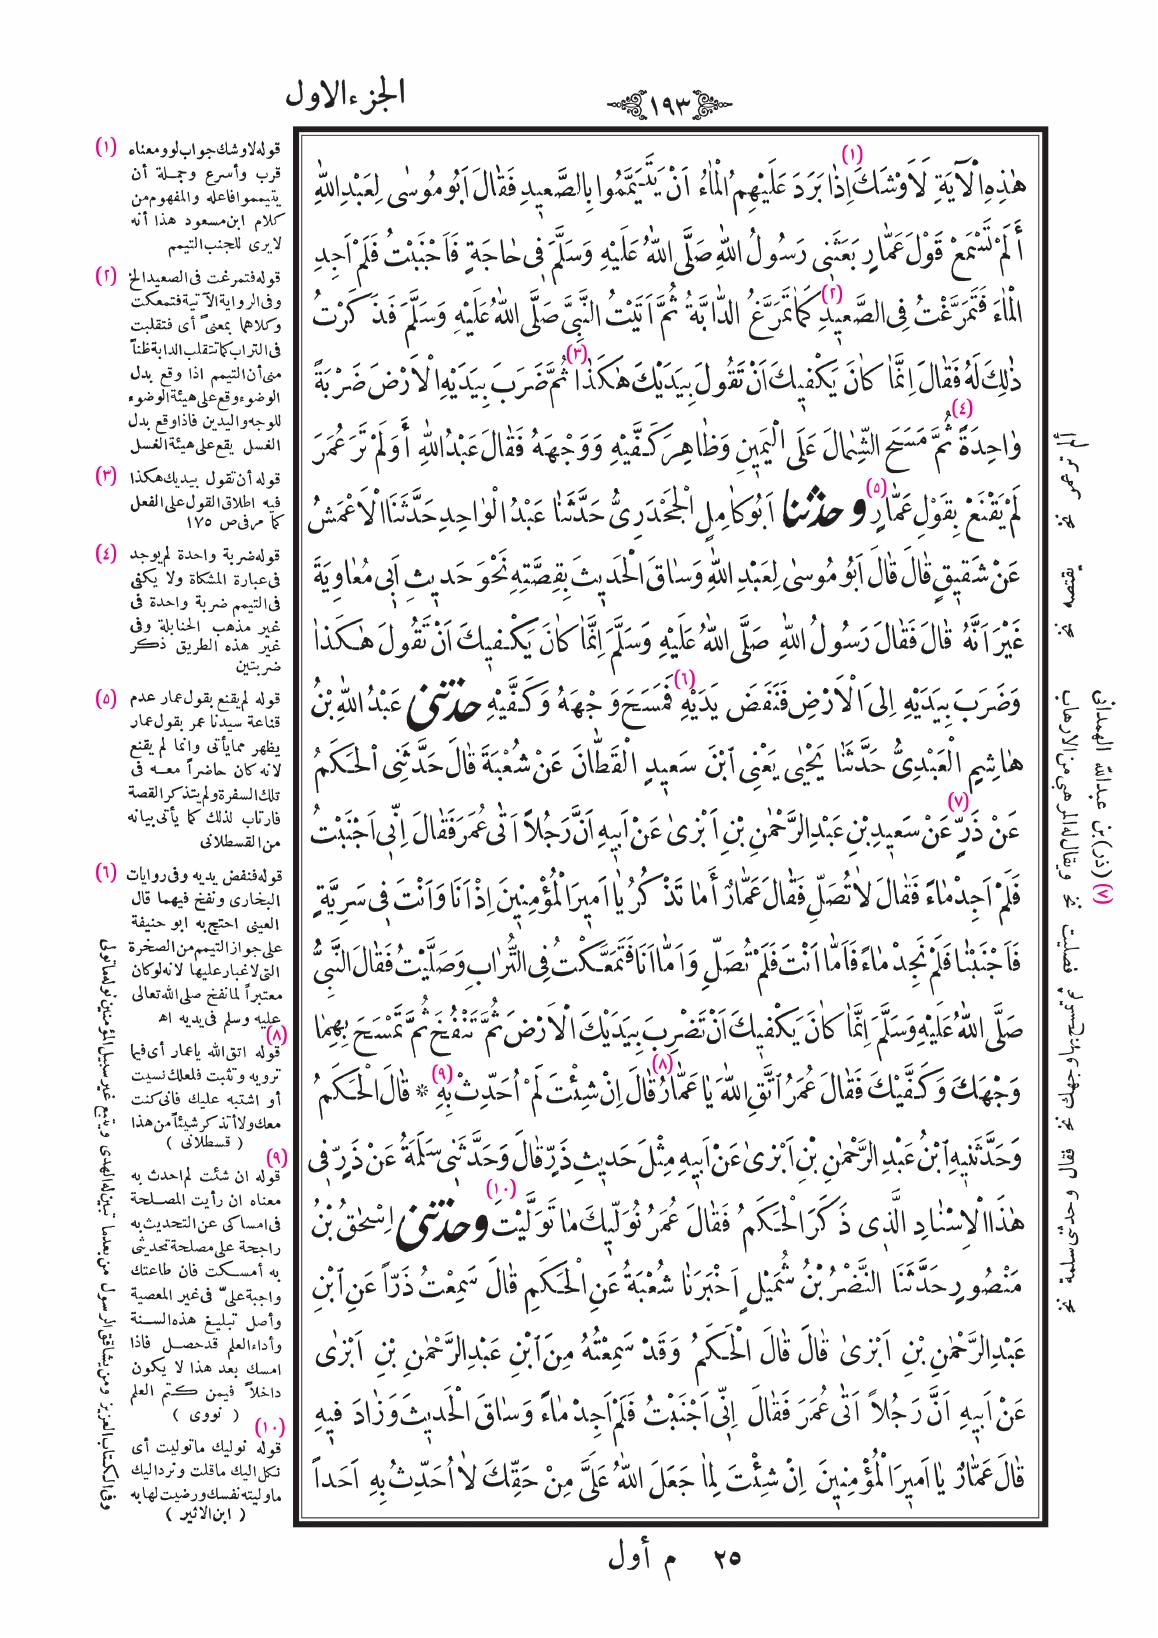 الجزء الاول
١٩٣
هٰذِهِ الْآيَةِ لَاَوْشَكَ (١) اِذَا بَرَدَ عَلَيْهِمُ الْمَاءُ اَنْ يَتَيَمَّمُوا بِالصَّعِيدِ فَقَالَ اَبُو مُوسٰى لِعَبْدِ اللّٰهِ
أَلَمْ تَسْمَعْ قَوْلَ عَمَّارٍ بَعَثَنِى رَسُولُ اللّٰهِ صَلَّى اللّٰهُ عَلَيْهِ وَسَلَّمَ فِى حَاجَةٍ فَاَجْنَبْتُ فَلَمْ اَجِدِ
الْمَاءَ فَتَمَرَّغْتُ فِى الصَّعِيدِ (٢) كَمَا تَمَرَّغُ الدَّابَّةُ ثُمَّ اَتَيْتُ النَّبِىَّ صَلَّى اللّٰهُ عَلَيْهِ وَسَلَّمَ فَذَكَرْتُ
ذٰلِكَ لَهُ فَقَالَ اِنَّمَا كَانَ يَكْفِيكَ اَنْ تَقُولَ بِيَدَيْكَ هٰكَذَا (٣) ثُمَّ ضَرَبَ بِيَدَيْهِ الْاَرْضَ ضَرْبَةً
وَاحِدَةً (٤) ثُمَّ مَسَحَ الشِّمَالَ عَلَى الْيَمِينِ وَظَاهِرَ كَفَّيْهِ وَوَجْهَهُ فَقَالَ عَبْدُ اللّٰهِ أَوَلَمْ تَرَ عُمَرَ
لَمْ يَقْنَعْ بِقَوْلِ عَمَّارٍ (٥) وحدثنا اَبُو كَامِلٍ الْجَحْدَرِىُّ حَدَّثَنَا عَبْدُ الْوَاحِدِ حَدَّثَنَا الْاَعْمَشُ
عَنْ شَقِيقٍ قَالَ قَالَ اَبُو مُوسٰى لِعَبْدِ اللّٰهِ وَسَاقَ الْحَدِيثَ بِقِصَّتِهِ نَحْوَ حَدِيثِ اَبِى مُعَاوِيَةَ
غَيْرَ اَنَّهُ قَالَ فَقَالَ رَسُولُ اللّٰهِ صَلَّى اللّٰهُ عَلَيْهِ وَسَلَّمَ اِنَّمَا كَانَ يَكْفِيكَ اَنْ تَقُولَ هٰكَذَا
وَضَرَبَ بِيَدَيْهِ اِلَى الْاَرْضِ فَنَفَضَ يَدَيْهِ (٦) فَمَسَحَ وَجْهَهُ وَكَفَّيْهِ حدثنى عَبْدُ اللّٰهِ بْنُ
هَاشِمٍ الْعَبْدِىُّ حَدَّثَنَا يَحْيٰى يَعْنِى ابْنَ سَعِيدٍ الْقَطَّانَ عَنْ شُعْبَةَ قَالَ حَدَّثَنِى الْحَكَمُ
عَنْ ذَرٍّ (٧) عَنْ سَعِيدِ بْنِ عَبْدِ الرَّحْمٰنِ بْنِ اَبْزٰى عَنْ اَبِيهِ اَنَّ رَجُلاً اَتٰى عُمَرَ فَقَالَ اِنِّى اَجْنَبْتُ
فَلَمْ اَجِدْ مَاءً فَقَالَ لَا تُصَلِّ فَقَالَ عَمَّارٌ أَمَا تَذْكُرُ يَا اَمِيرَ الْمُؤْمِنِينَ اِذْ اَنَا وَاَنْتَ فِى سَرِيَّةٍ
فَاَجْنَبْنَا فَلَمْ نَجِدْ مَاءً فَاَمَّا اَنْتَ فَلَمْ تُصَلِّ وَاَمَّا اَنَا فَتَمَعَّكْتُ فِى التُّرَابِ وَصَلَّيْتُ فَقَالَ النَّبِىُّ
صَلَّى اللّٰهُ عَلَيْهِ وَسَلَّمَ اِنَّمَا كَانَ يَكْفِيكَ اَنْ تَضْرِبَ بِيَدَيْكَ الْاَرْضَ ثُمَّ تَنْفُخَ ثُمَّ تَمْسَحَ بِهِمَا
وَجْهَكَ وَكَفَّيْكَ فَقَالَ عُمَرُ اتَّقِ اللّٰهَ يَا عَمَّارُ (٨) قَالَ اِنْ شِئْتَ لَمْ اُحَدِّثْ بِهِ (٩) * قَالَ الْحَكَمُ
وَحَدَّثَنِيهِ ابْنُ عَبْدِ الرَّحْمٰنِ بْنِ اَبْزٰى عَنْ اَبِيهِ مِثْلَ حَدِيثِ ذَرٍّ قَالَ وَحَدَّثَنِى سَلَمَةُ عَنْ ذَرٍّ فِى
هٰذَا الْاِسْنَادِ الَّذِى ذَكَرَ الْحَكَمُ فَقَالَ عُمَرُ نُوَلِّيكَ مَا تَوَلَّيْتَ (١٠) وحدثنى اِسْحٰقُ بْنُ
مَنْصُورٍ حَدَّثَنَا النَّضْرُ بْنُ شُمَيْلٍ اَخْبَرَنَا شُعْبَةُ عَنِ الْحَكَمِ قَالَ سَمِعْتُ ذَرّاً عَنِ ابْنِ
عَبْدِ الرَّحْمٰنِ بْنِ اَبْزٰى قَالَ قَالَ الْحَكَمُ وَقَدْ سَمِعْتُهُ مِنَ ابْنِ عَبْدِ الرَّحْمٰنِ بْنِ اَبْزٰى
عَنْ اَبِيهِ اَنَّ رَجُلاً اَتٰى عُمَرَ فَقَالَ اِنِّى اَجْنَبْتُ فَلَمْ اَجِدْ مَاءً وَسَاقَ الْحَدِيثَ وَزَادَ فِيهِ
قَالَ عَمَّارٌ يَا اَمِيرَ الْمُؤْمِنِينَ اِنْ شِئْتَ لِمَا جَعَلَ اللّٰهُ عَلَىَّ مِنْ حَقِّكَ لَا اُحَدِّثُ بِهِ اَحَداً
(١) قوله لاوشك جواب لو ومعناه
قرب وأسرع وجملة أن
يتيمموا فاعله والمفهوم من
كلام ابن مسعود هذا أنه
لا يرى للجنب التيمم
(٢) قوله فتمرغت فى الصعيد الخ
وفى الرواية الآتية فتمعكت
وكلاهما بمعنى أى فتقلبت
فى التراب كما تتقلب الدابة ظناً
منى أن التيمم اذا وقع بدل
الوضوء وقع على هيئة الوضوء
للوجه واليدين فاذا وقع بدل
الغسل يقع على هيئة الغسل
(٣) قوله أن تقول بيديك هكذا
فيه اطلاق القول على الفعل
كما مر فى ص ١٧٥
(٤) قوله ضربة واحدة لم يوجد
فى عبارة المشكاة ولا يكفى
فى التيمم ضربة واحدة فى
غير مذهب الحنابلة وفى
غير هذه الطريق ذكر
ضربتين
(٥) قوله لم يقنع بقول عمار عدم
قناعة سيدنا عمر بقول عمار
يظهر مما يأتى وانما لم يقنع
لانه كان حاضراً معه فى
تلك السفرة ولم يتذكر القصة
فارتاب لذلك كما يأتى بيانه
من القسطلانى
(٦) قوله فنفض يديه وفى روايات
البخارى ونفخ فيهما قال
العينى احتج به ابو حنيفة
على جواز التيمم من الصخرة
التى لا غبار عليها لانه لو كان
معتبراً لما نفخ صلى الله تعالى
عليه وسلم فى يديه اهـ
(٨) قوله اتق الله يا عمار أى فيما
ترويه وتثبت فلعلك نسيت
أو اشتبه عليك فانى كنت
معك ولا أتذكر شيئاً من هذا
( قسطلانى )
(٩) قوله ان شئت لم احدث به
معناه ان رأيت المصلحة
فى امساكى عن التحديث به
راجحة على مصلحة تحديثى
به أمسكت فان طاعتك
واجبة علىّ فى غير المعصية
وأصل تبليغ هذه السنة
وأداء العلم قد حصل فاذا
امسك بعد هذا لا يكون
داخلاً فيمن كتم العلم
( نووى )
(١٠) قوله نوليك ما توليت أى
نكل اليك ما قلت ونرد اليك
ما وليته نفسك ورضيت لها به
( ابن الاثير )
وفى الكتاب العزيز ومن يشاقق الرسول من بعدما تبين له الهدى ويتبع غير سبيل المؤمنين نوله ما تولى
(٧) (ذر) بن عبد الله الهمدانى
ويقال له المرهبى من الارهاب
فقال وحدثى سلمة نخ
٢٥ م أول